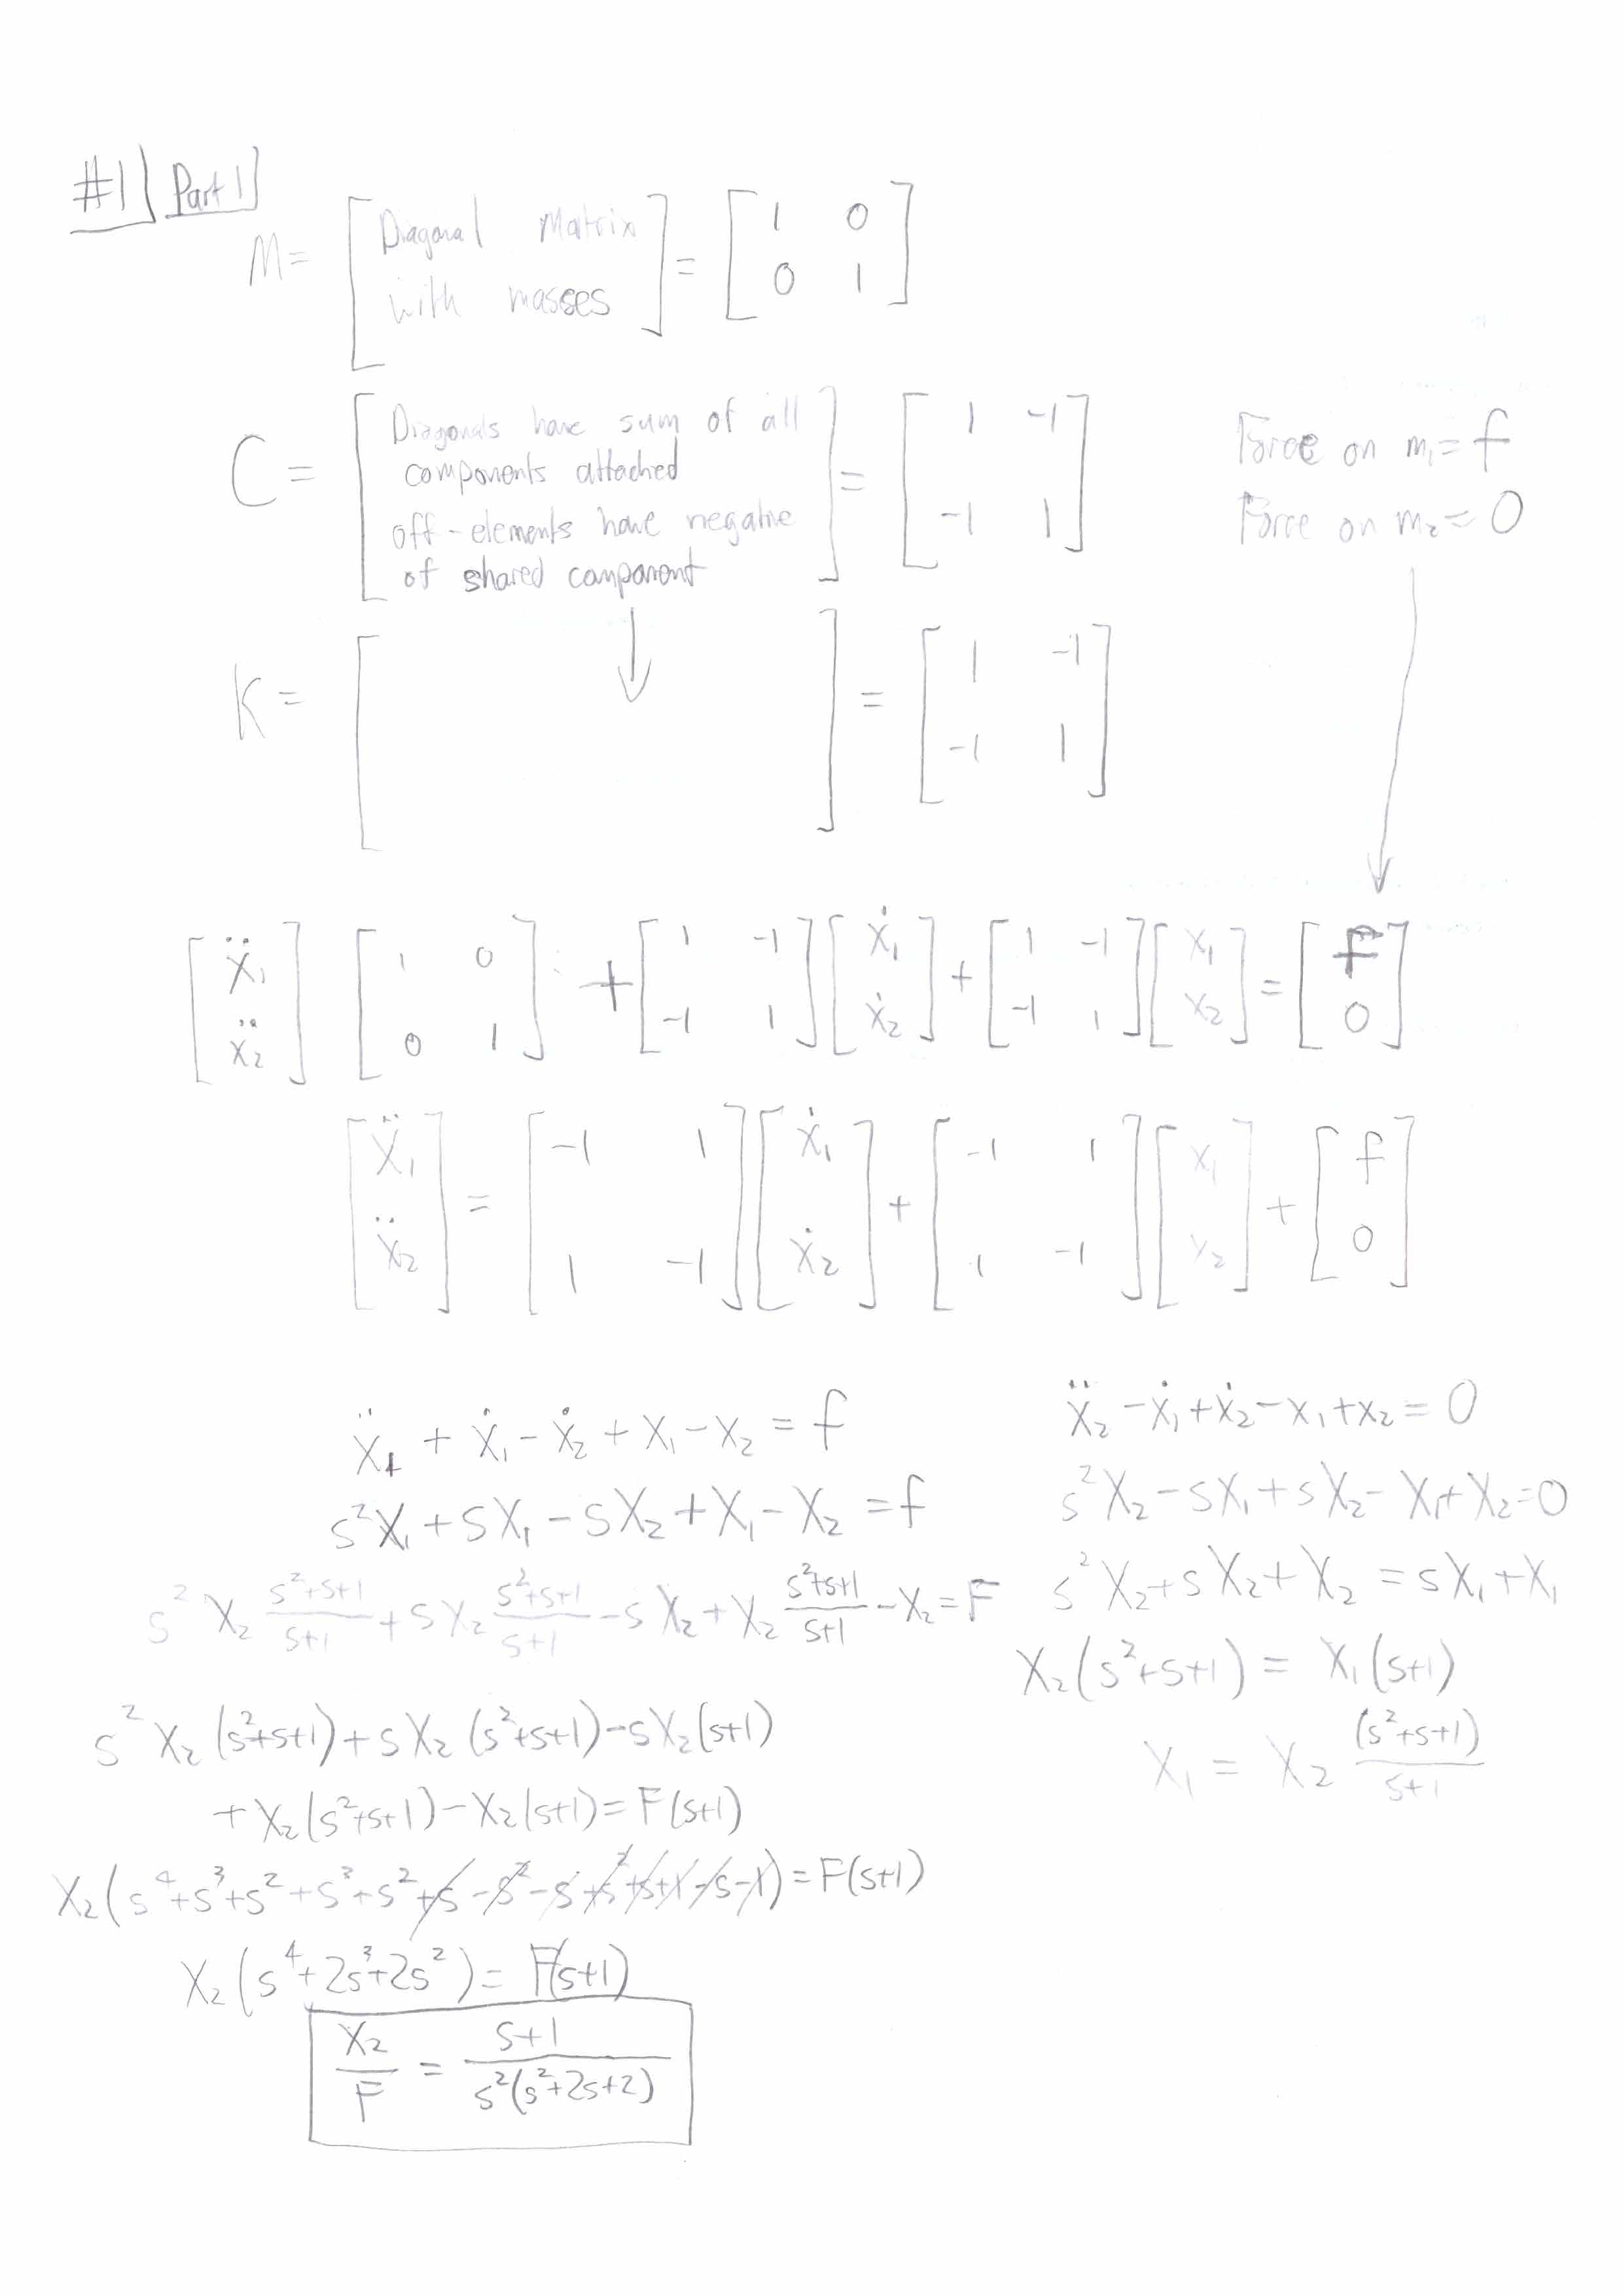 #1 Part 1
M = [Diagonal Matrix with masses] = [1 0; 0 1]
C = [Diagonals have sum of all components attached off-elements have negative of shared component] = [1 -1; -1 1]
Force on m₁ = f
Force on m₂ = 0
K = [↓] = [1 -1; -1 1]
[ẍ₁; ẍ₂] [1 0; 0 1] + [1 -1; -1 1] [ẋ₁; ẋ₂] + [1 -1; -1 1] [x₁; x₂] = [f; 0]
[ẍ₁; ẍ₂] = [-1 1; 1 -1] [ẋ₁; ẋ₂] + [-1 1; 1 -1] [x₁; x₂] + [f; 0]
ẍ₁ + ẋ₁ - ẋ₂ + x₁ - x₂ = f
s²X₁ + sX₁ - sX₂ + X₁ - X₂ = f
s² X₂ (s²+s+1)/(s+1) + s X₂ (s²+s+1)/(s+1) - s X₂ + X₂ (s²+s+1)/(s+1) - X₂ = F
s² X₂ (s²+s+1) + s X₂ (s²+s+1) - s X₂ (s+1)
+ X₂ (s²+s+1) - X₂ (s+1) = F (s+1)
X₂ (s⁴+s³+s²+s³+s²+s-s²-s+s²+s+1-s-1) = F(s+1)
X₂ (s⁴+2s³+2s²) = F(s+1)
X₂/F = (s+1)/(s²(s²+2s+2))
ẍ₂ - ẋ₁ + ẋ₂ - x₁ + x₂ = 0
s²X₂ - sX₁ + sX₂ - X₁ + X₂ = 0
s²X₂ + sX₂ + X₂ = sX₁ + X₁
X₂ (s²+s+1) = X₁ (s+1)
X₁ = X₂ (s²+s+1)/(s+1)